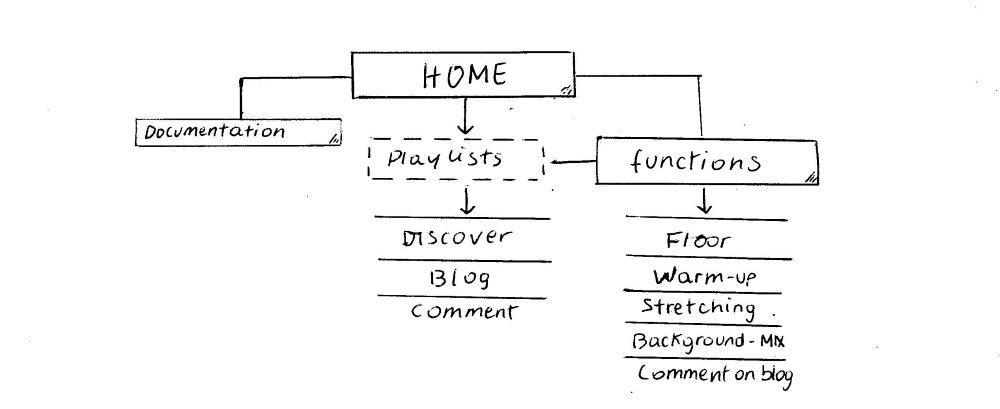 HOME
Documentation
Playlists
functions
Discover
Blog
Comment
Floor
Warm-up
Stretching
Background - Mix
Comment on blog